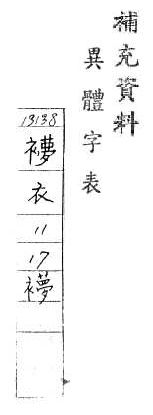 補充資料
異體字表
13138
衣
11
17